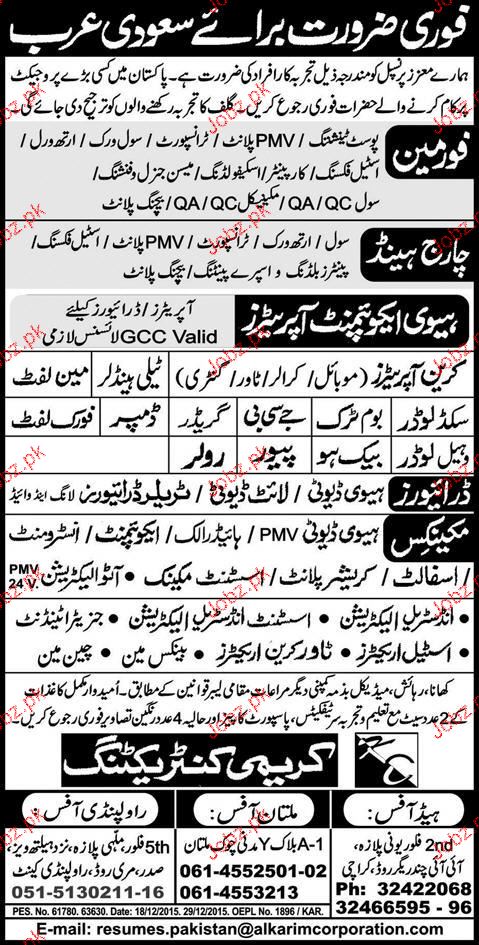 فوری ضرورت برائے سعودی عرب
ہمارے معزز پرنسپل کو مندرجہ ذیل تجربہ کار افراد کی ضرورت ہے۔ پاکستان میں کسی بڑے پروجیکٹ
پر کام کرنے والے حضرات فوری رجوع کریں۔ گلف کا تجربہ رکھنے والوں کو ترجیح دی جائے گی
فورمین
پوسٹ ٹینشننگ / PMV پلانٹ / ٹرانسپورٹ / سول ورک / ارتھ ورک /
اسٹیل فکسنگ / کارپینٹر / اسکیفولڈنگ / میسن جنرل و فنشنگ /
سول QA/QC / مکینیکل QA/QC / بیچنگ پلانٹ
چارج ہینڈ
سول / ارتھ ورک / ٹرانسپورٹ / PMV پلانٹ / اسٹیل فکسنگ /
پینٹرز بلڈنگ و اسپرے پینٹنگ / بیچنگ پلانٹ
ہیوی ایکوئپمنٹ آپریٹرز
آپریٹرز / ڈرائیورز کیلئے
GCC Valid لائسنس لازمی
کرین آپریٹرز (موبائل / کرالر / ٹاور / گنٹری) ٹیلی ہینڈلر مین لفٹ
سکڈ لوڈر بوم ٹرک جے سی بی گریڈر ڈمپر فورک لفٹ
وہیل لوڈر بیک ہو پیور رولر
ڈرائیورز ہیوی ڈیوٹی / لائٹ ڈیوٹی / ٹریلر ڈرائیورز لانگ اینڈ وائیڈ
مکینکس ہیوی ڈیوٹی PMV / ہائیڈرالک / ایکوئپمنٹ / انسٹرومنٹ
/ اسفالٹ / کریشر پلانٹ / اسسٹنٹ مکینک • آٹو الیکٹریشن PMV 24 V.
• انڈسٹریل الیکٹریشن • اسسٹنٹ انڈسٹریل الیکٹریشن • جنریٹر اٹینڈنٹ
• اسٹیل اریکٹرز • ٹاور کرین اریکٹرز • بینکس مین • چین مین
کھانا، رہائش، میڈیکل بذمہ کمپنی دیگر مراعات مقامی لیبر قوانین کے مطابق۔ اُمیدوار مکمل کاغذات
کے 2 عدد سیٹ مع تعلیم و تجربہ سرٹیفکیٹس، پاسپورٹ کاپیز اور حالیہ 4 عدد رنگین تصاویر فوری رجوع کریں۔
کریمی کنٹریکٹنگ
ہیڈ آفس:
2nd فلور یونی پلازہ،
آئی آئی چندریگر روڈ، کراچی
Ph: 32422068
32466595 - 96
ملتان آفس:
A-1 بلاک Y مدنی چوک ملتان
061-4552501-02
061-4553213
راولپنڈی آفس:
5th فلور، ملہی پلازہ، نزد ہیلتھ ویز،
صدر، مری روڈ، راولپنڈی کینٹ
051-5130211-16
PES. No. 61780. 63630. Date: 18/12/2015. 29/12/2015. OEPL No. 1896 / KAR.
E-mail: resumes.pakistan@alkarimcorporation.com
Jobz.pk